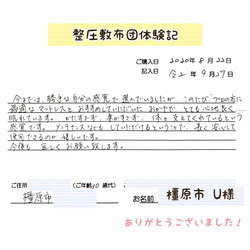 整圧敷布団体験記
ご購入日 2020年8月22日
記入日 令2年9月27日
今までは、勝手な自分の感覚で選んでいましたが、このたびプロの方に
最適なマットレスとお勧めしていただいたおかげで、とても心地良く
眠れています。かたすぎず、柔かすぎず、体を支えてくれているという
感覚です。メンテナンスなどもしていただけるということで、長く安心して
使用できるのが嬉しいです。
今後も宜しくお願い致します。
ご住所 橿原市 (ご年齢 歳代) お名前 橿原市 U様
ありがとうございました!